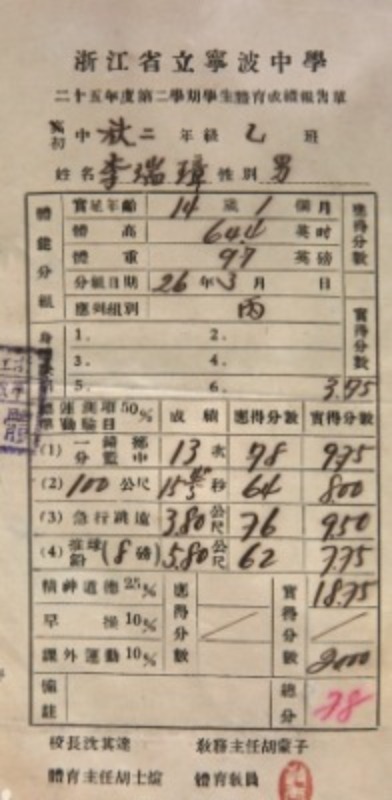 浙江省立寧波中學
二十五年度第二學期學生體育成績報告單
初中 秋二 年級 乙 班
姓名 李瑞璋 性別 男
體能分組
實足年齡 14 歲 1 個月 應得分數
體高 64.4 英吋
體重 97 英磅
分組日期 26 年 3 月 日
應列組別 丙 實得分數
1. 2.
3. 4.
5. 6. 3.75
運動項目 50% 成績 應得分數 實得分數
(1) 一分鐘擲籃中 13 次 78 9.75
(2) 100 公尺 15 秒 64 8.00
(3) 急行跳遠 3.80 公尺 76 9.50
(4) 推鉛球(8磅) 5.80 公尺 62 7.75
精神道德 25% 應得分數 實得分數 18.75
早操 10%
課外運動 10%
備註 總分 78
校長沈其達 教務主任胡蒙子
體育主任胡士煊 體育教員